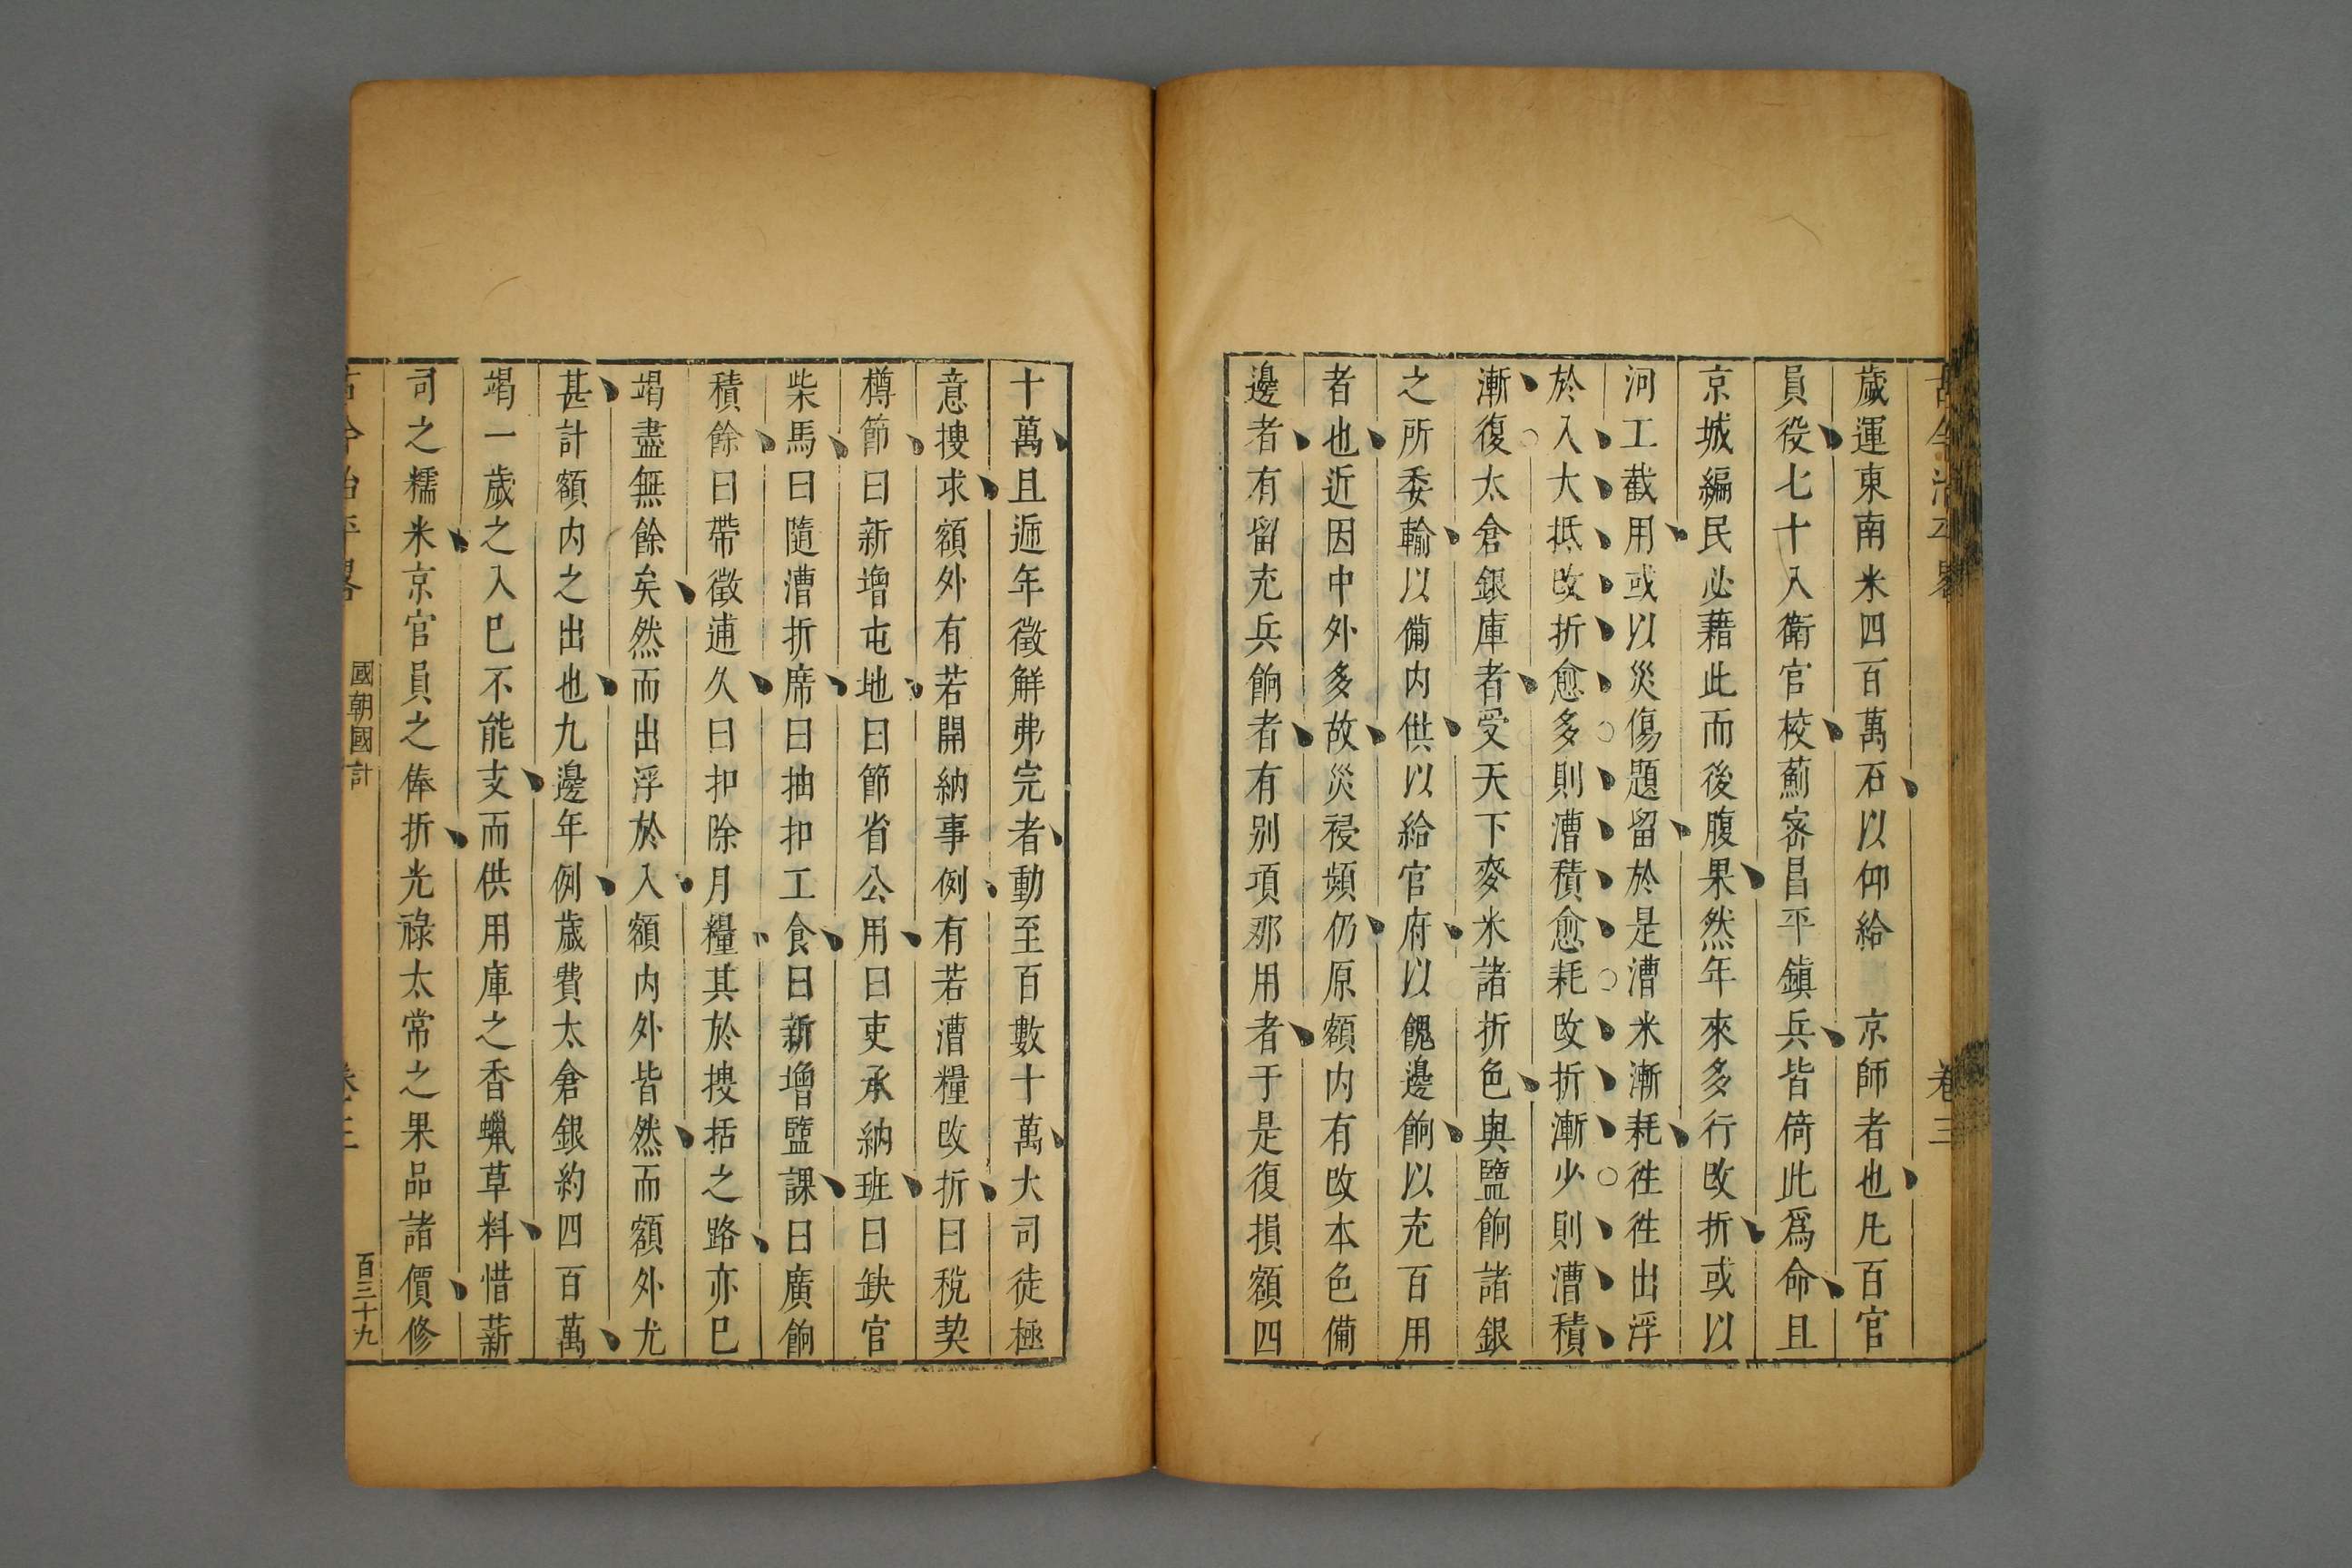 古今治平畧 卷三
歲運東南米四百萬石以仰給 京師者也凡百官
員役七十八衛官校薊密昌平鎮兵皆倚此爲命且
京城編民必藉此而後腹果然年來多行改折或以
河工截用或以災傷題留於是漕米漸耗徃徃出浮
於入大抵改折愈多則漕積愈耗改折漸少則漕積
漸復太倉銀庫者受天下麥米諸折色與鹽餉諸銀
之所委輸以備内供以給官府以餽邊餉以充百用
者也近因中外多故災祲頻仍原額内有改本色備
邊者有留充兵餉者有别項那用者于是復損額四
十萬且遞年徵解弗完者動至百數十萬大司徒極
意搜求額外有若開納事例有若漕糧改折曰稅契
樽節曰新增屯地曰節省公用曰吏承納班曰缺官
柴馬曰隨漕折席曰抽扣工食曰新增鹽課曰廣餉
積餘曰帶徵逋久曰扣除月糧其於搜括之路亦巳
竭盡無餘矣然而出浮於入額内外皆然而額外尤
甚計額内之出也九邊年例歲費太倉銀約四百萬
竭一歲之入巳不能支而供用庫之香蠟草料惜薪
司之糯米京官員之俸折光祿太常之果品諸價修
古今治平畧 國朝國計 卷三 百三十九